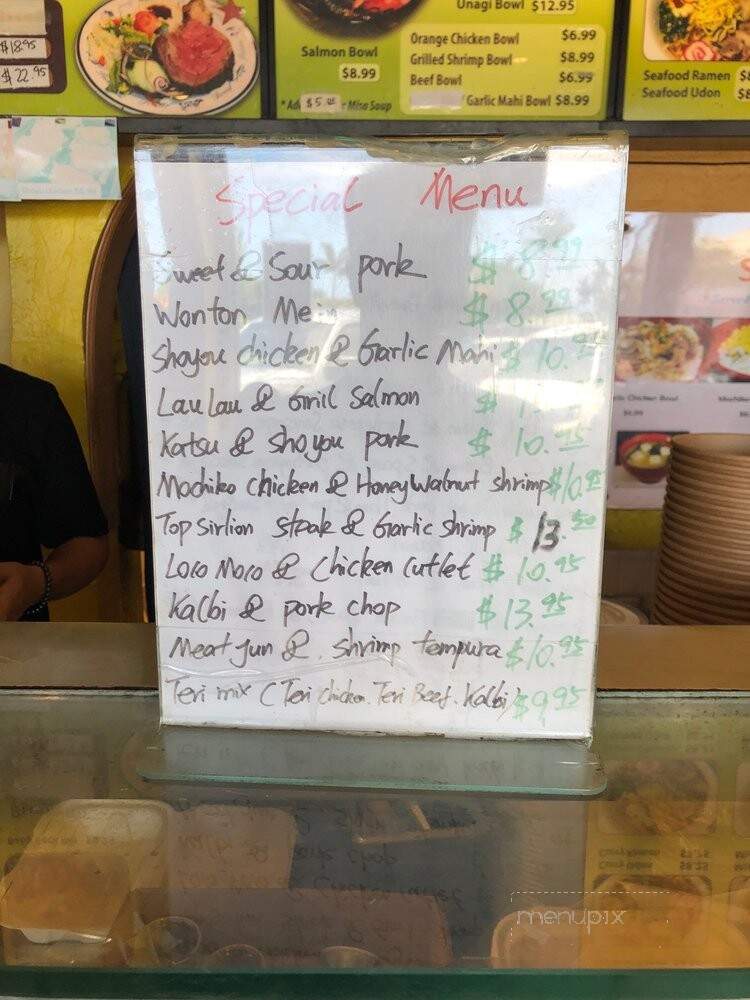 $18.95
$22.95
Salmon Bowl
$8.99
Unagi Bowl $12.95
Orange Chicken Bowl $6.99
Grilled Shrimp Bowl $8.99
Beef Bowl $6.99
Garlic Mahi Bowl $8.99
Miso Soup
Seafood Ramen
Seafood Udon
Special Menu
Sweet & Sour pork $8.99
Wonton Mein $8.99
Shoyou chicken & Garlic Mahi $10.
Lau Lau & Grill Salmon $
Katsu & shoyou pork $10.95
Mochiko chicken & Honey walnut shrimp $10.95
Top Sirlion steak & Garlic shrimp $13.50
Loco Moco & Chicken Cutlet $10.95
Kalbi & pork chop $13.95
Meat Jun & shrimp tempura $10.95
Teri mix (Teri chicken. Teri Beef. Kalbi) $9.95
Chicken Bowl
menupix